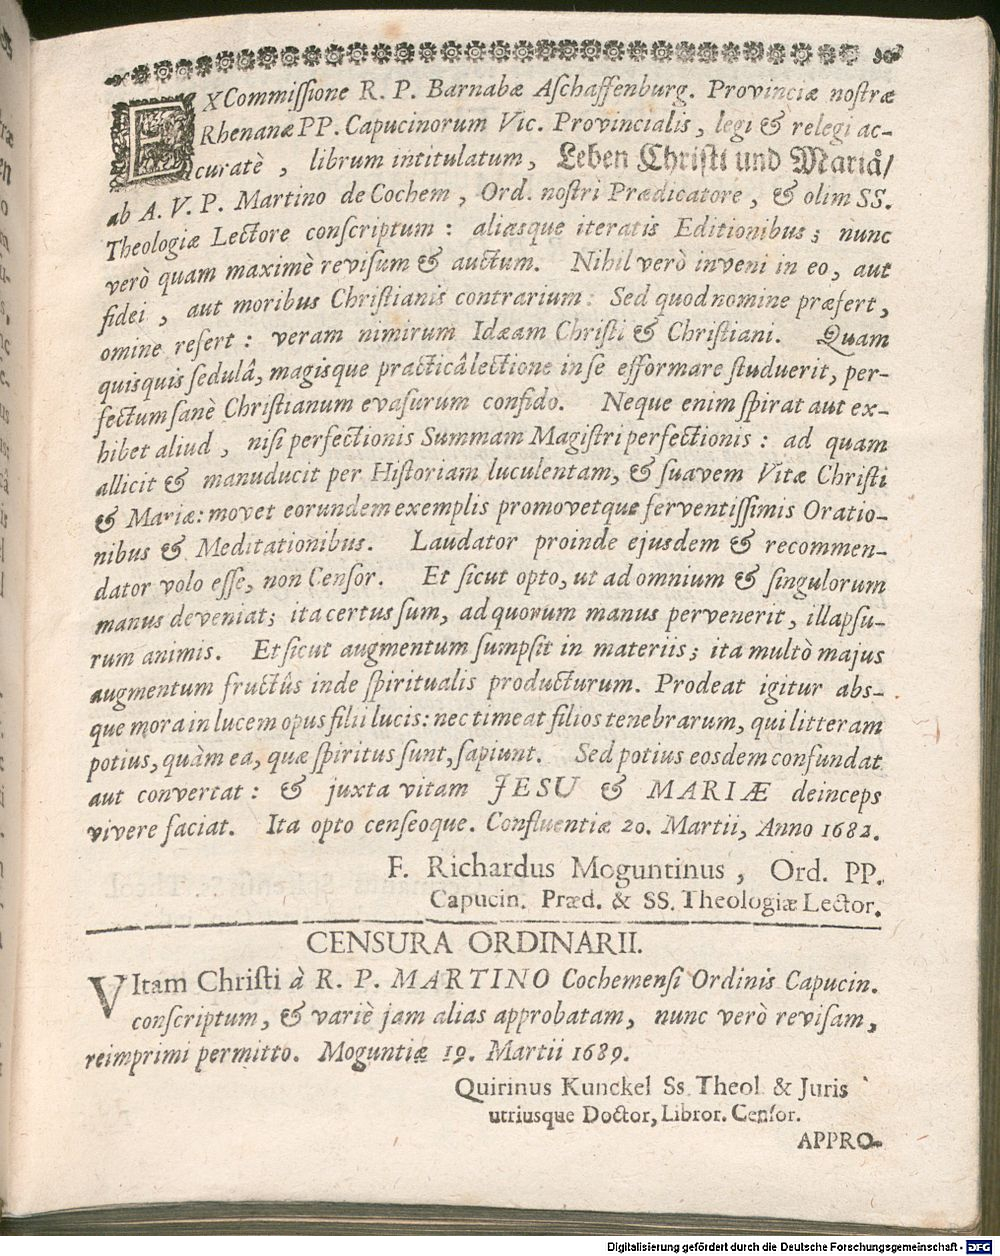 EX Commissione R. P. Barnabæ Aschaffenburg. Provinciæ nostræ
Rhenanæ PP. Capucinorum Vic. Provincialis, legi & relegi ac-
curatè, librum intitulatum, Leben Christi und Mariå/
ab A. V. P. Martino de Cochem, Ord. nostri Prædicatore, & olim SS.
Theologiæ Lectore conscriptum: aliasque iteratis Editionibus; nunc
verò quam maximè revisum & auctum. Nihil verò inveni in eo, aut
fidei, aut moribus Christianis contrarium: Sed quod nomine præfert,
omine refert: veram nimirum Idæam Christi & Christiani. Quam
quisquis sedulâ, magisque practicâ lectione in se efformare studuerit, per-
fectum sanè Christianum evasurum confido. Neque enim spirat aut ex-
hibet aliud, nisi perfectionis Summam Magistri perfectionis: ad quam
allicit & manuducit per Historiam luculentam, & suavem Vitæ Christi
& Mariæ: movet eorundem exemplis promovetque ferventissimis Oratio-
nibus & Meditationibus. Laudator proinde ejusdem & recommen-
dator volo esse, non Censor. Et sicut opto, ut ad omnium & singulorum
manus deveniat; ita certus sum, ad quorum manus pervenerit, illapsu-
rum animis. Et sicut augmentum sumpsit in materiis; ita multò majus
augmentum fructûs inde spiritualis producturum. Prodeat igitur abs-
que mora in lucem opus filii lucis: nec timeat filios tenebrarum, qui litteram
potius, quàm ea, quæ spiritus sunt, sapiunt. Sed potius eosdem confundat
aut convertat: & juxta vitam JESU & MARIÆ deinceps
vivere faciat. Ita opto censeoque. Confluentiæ 20. Martii, Anno 1682.
F. Richardus Moguntinus, Ord. PP.
Capucin. Præd. & SS. Theologiæ Lector.
CENSURA ORDINARII.
VItam Christi à R. P. MARTINO Cochemensi Ordinis Capucin.
conscriptum, & variè jam alias approbatam, nunc verò revisam,
reimprimi permitto. Moguntiæ 19. Martii 1689.
Quirinus Kunckel Ss. Theol. & Juris
utriusque Doctor, Libror. Censor.
APPRO-
Digitalisierung gefördert durch die Deutsche Forschungsgemeinschaft - DFG